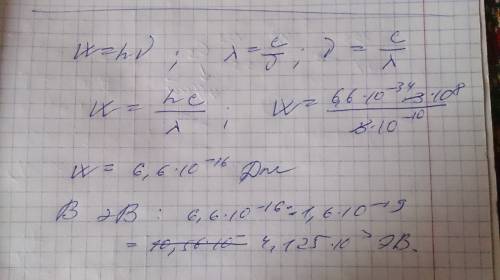 W = hν ; λ = c/ν ; ν = c/λ
W = hc/λ ; W = 6,6·10⁻³⁴·3·10⁸ / 3·10⁻¹⁰
W = 6,6·10⁻¹⁶ Дж
В эВ : 6,6·10⁻¹⁶ : 1,6·10⁻¹⁹
= 4,125·10³ эВ.